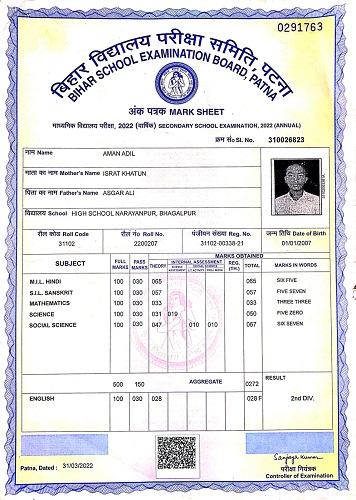 0291763
बिहार विद्यालय परीक्षा समिति, पटना
BIHAR SCHOOL EXAMINATION BOARD, PATNA
अंक पत्रक MARK SHEET
माध्यमिक विद्यालय परीक्षा, 2022 (वार्षिक) SECONDARY SCHOOL EXAMINATION, 2022 (ANNUAL)
क्रम सं० Sl. No. 310026823
नाम Name AMAN ADIL
माता का नाम Mother's Name ISRAT KHATUN
पिता का नाम Father's Name ASGAR ALI
विद्यालय School HIGH SCHOOL NARAYANPUR, BHAGALPUR
रौल कोड Roll Code रौल नं० Roll No. पंजीयन संख्या Reg. No. जन्म तिथि Date of Birth
31102 2200207 31102-00338-21 01/01/2007
MARKS OBTAINED
SUBJECT FULL MARKS PASS MARKS THEORY INTERNAL ASSESSMENT REG. (TH.) TOTAL MARKS IN WORDS
M.I.L. HINDI 100 030 065 065 SIX FIVE
S.I.L. SANSKRIT 100 030 057 057 FIVE SEVEN
MATHEMATICS 100 030 033 033 THREE THREE
SCIENCE 100 030 031 019 050 FIVE ZERO
SOCIAL SCIENCE 100 030 047 010 010 067 SIX SEVEN
500 150 AGGREGATE 0272 RESULT
ENGLISH 100 030 028 028 F 2nd DIV.
Patna, Dated : 31/03/2022
Sanjay Kumar
परीक्षा नियंत्रक
Controller of Examination